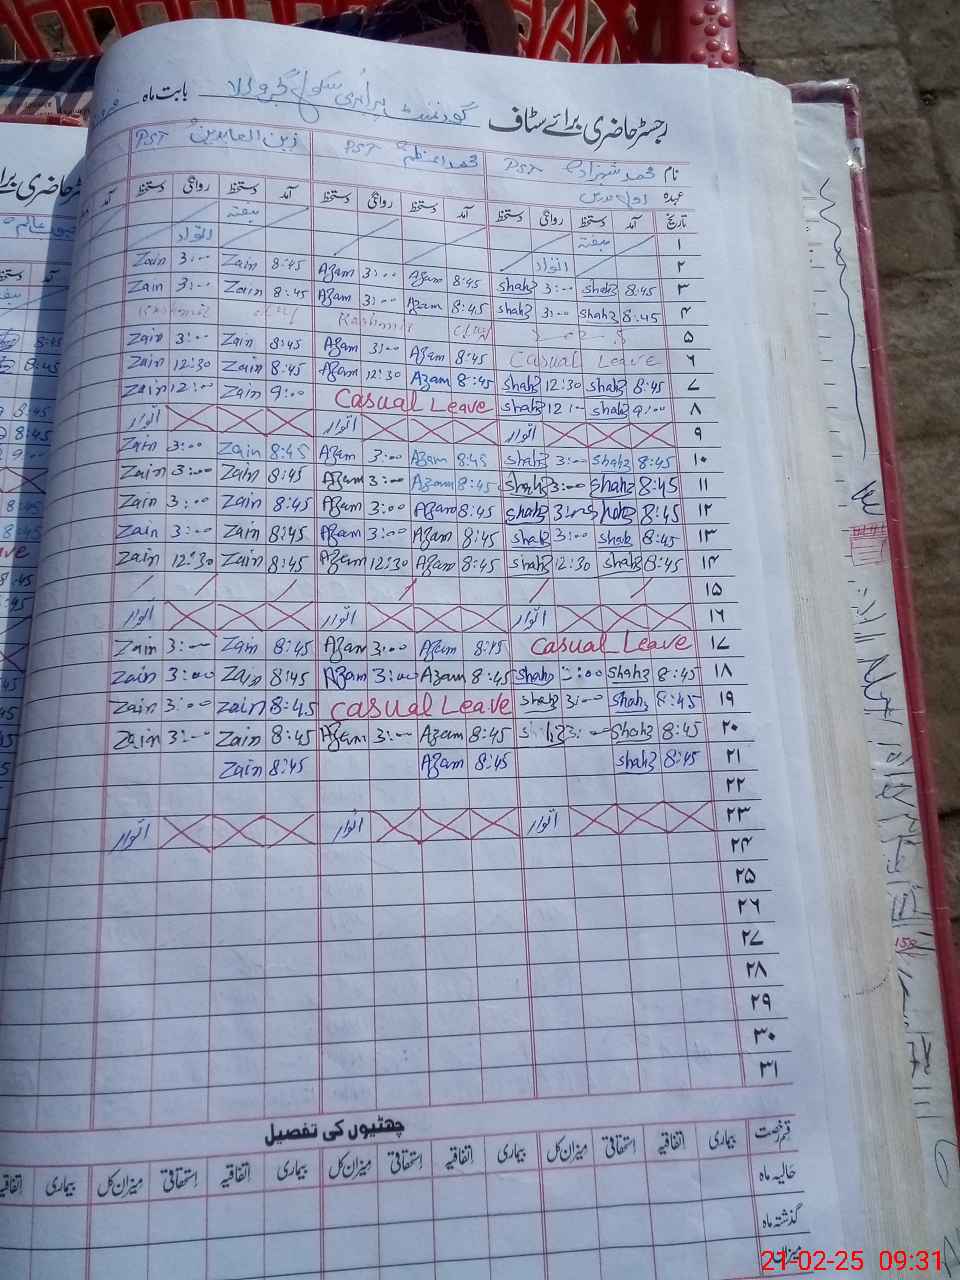 رجسٹر حاضری برائے سٹاف گورنمنٹ پرائمری سکول بابت ماہ
نام محمد شہزاد PST محمد اعظم PST زین العابدین PST
عہدہ
تاریخ آمد دستخط روانگی دستخط آمد دستخط روانگی دستخط آمد دستخط روانگی دستخط
۱ ہفتہ ہفتہ
۲ اتوار اتوار
۳ 8:45 Shahz 3:00 Shahz 8:45 Azam 3:00 Azam 8:45 Zain 3:00 Zain
۴ 8:45 Shahz 3:00 Shahz 8:45 Azam 3:00 Azam 8:45 Zain 3:00 Zain
۵ Kashmir Kashmir
۶ Casual Leave 8:45 Azam 3:00 Azam 8:45 Zain 3:00 Zain
۷ 8:45 Shahz 12:30 Shahz 8:45 Azam 12:30 Azam 8:45 Zain 12:30 Zain
۸ 9:00 Shahz 12:00 Shahz Casual Leave 9:00 Zain 12:00 Zain
۹ اتوار اتوار اتوار
۱۰ 8:45 Shahz 3:00 Shahz 8:45 Azam 3:00 Azam 8:45 Zain 3:00 Zain
۱۱ 8:45 Shahz 3:00 Shahz 8:45 Azam 3:00 Azam 8:45 Zain 3:00 Zain
۱۲ 8:45 Shahz 3:00 Shahz 8:45 Azam 3:00 Azam 8:45 Zain 3:00 Zain
۱۳ 8:45 Shahz 3:00 Shahz 8:45 Azam 3:00 Azam 8:45 Zain 3:00 Zain
۱۴ 8:45 Shahz 12:30 Shahz 8:45 Azam 12:30 Azam 8:45 Zain 12:30 Zain
۱۵
۱۶ اتوار اتوار اتوار
۱۷ Casual Leave 8:45 Azam 3:00 Azam 8:45 Zain 3:00 Zain
۱۸ 8:45 Shahz 3:00 Shahz 8:45 Azam 3:00 Azam 8:45 Zain 3:00 Zain
۱۹ 8:45 Shahz 3:00 Shahz Casual Leave 8:45 Zain 3:00 Zain
۲۰ 8:45 Shahz 3:00 Shahz 8:45 Azam 3:00 Azam 8:45 Zain 3:00 Zain
۲۱ 8:45 Shahz 8:45 Azam 8:45 Zain
۲۲
۲۳ اتوار اتوار اتوار
۲۴
۲۵
۲۶
۲۷
۲۸
۲۹
۳۰
۳۱
چھٹیوں کی تفصیل
قسم رخصت بیماری اتفاقیہ استحقاقی میزان کل بیماری اتفاقیہ استحقاقی میزان کل بیماری اتفاقیہ استحقاقی میزان کل بیماری اتفاقیہ
حالیہ ماہ
گذشتہ ماہ
میزان
21-02-25 09:31